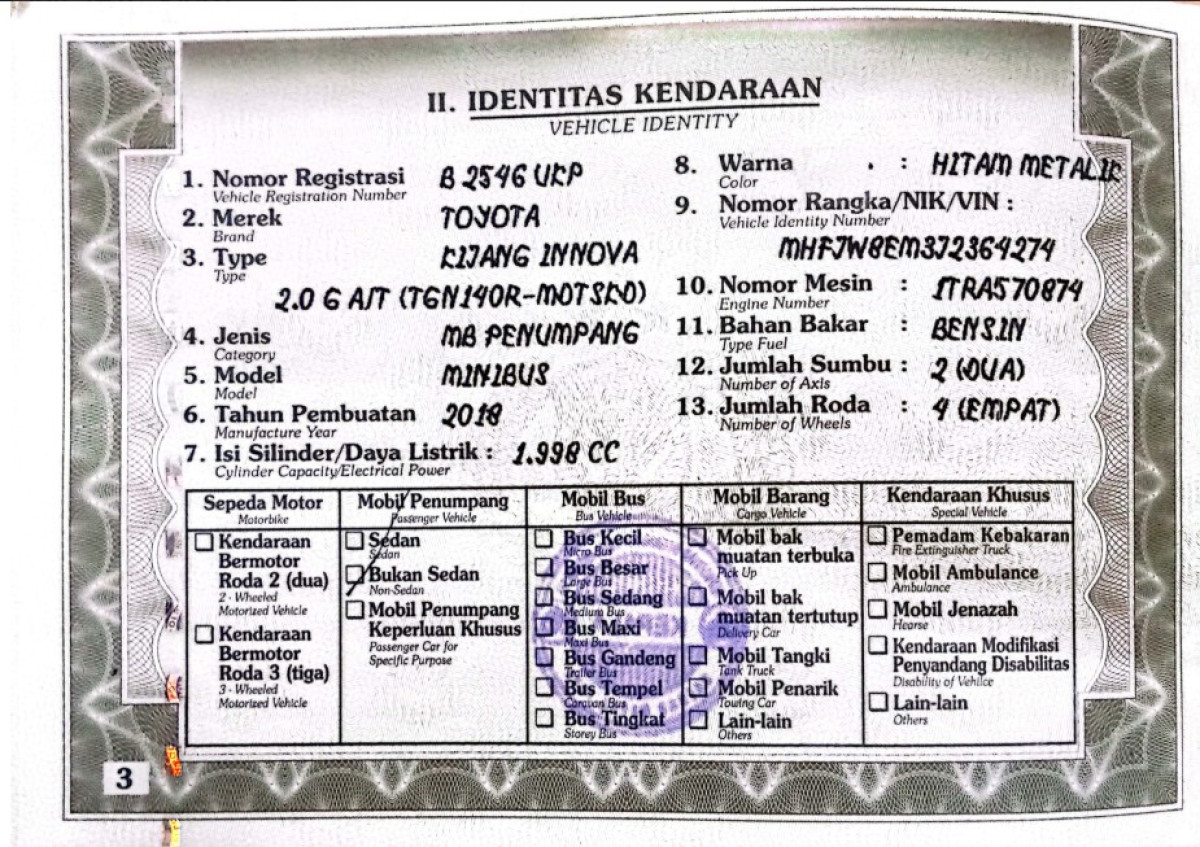 II. IDENTITAS KENDARAAN
VEHICLE IDENTITY
1. Nomor Registrasi B 2546 UKP
Vehicle Registration Number
2. Merek TOYOTA
Brand
3. Type KIJANG INNOVA
Type
2.0 G A/T (TGN140R-MDTSKD)
4. Jenis MB PENUMPANG
Category
5. Model MINIBUS
Model
6. Tahun Pembuatan 2018
Manufacture Year
7. Isi Silinder/Daya Listrik : 1.998 CC
Cylinder Capacity/Electrical Power
8. Warna : HITAM METALIK
Color
9. Nomor Rangka/NIK/VIN :
Vehicle Identity Number
MHFJW8EM3J2364274
10. Nomor Mesin : 1TRA570874
Engine Number
11. Bahan Bakar : BENSIN
Type Fuel
12. Jumlah Sumbu : 2 (DUA)
Number of Axis
13. Jumlah Roda : 4 (EMPAT)
Number of Wheels
Sepeda Motor
Motorbike
Kendaraan
Bermotor
Roda 2 (dua)
2 - Wheeled
Motorized Vehicle
Kendaraan
Bermotor
Roda 3 (tiga)
3 - Wheeled
Motorized Vehicle
Mobil Penumpang
Passenger Vehicle
Sedan
Sedan
Bukan Sedan
Non-Sedan
Mobil Penumpang
Keperluan Khusus
Passenger Car for
Specific Purpose
Mobil Bus
Bus Vehicle
Bus Kecil
Micro Bus
Bus Besar
Large Bus
Bus Sedang
Medium Bus
Bus Maxi
Maxi Bus
Bus Gandeng
Trailer Bus
Bus Tempel
Caravan Bus
Bus Tingkat
Storey Bus
Mobil Barang
Cargo Vehicle
Mobil bak
muatan terbuka
Pick Up
Mobil bak
muatan tertutup
Delivery Car
Mobil Tangki
Tank Truck
Mobil Penarik
Towing Car
Lain-lain
Others
Kendaraan Khusus
Special Vehicle
Pemadam Kebakaran
Fire Extinguisher Truck
Mobil Ambulance
Ambulance
Mobil Jenazah
Hearse
Kendaraan Modifikasi
Penyandang Disabilitas
Disability of Vehilce
Lain-lain
Others
3